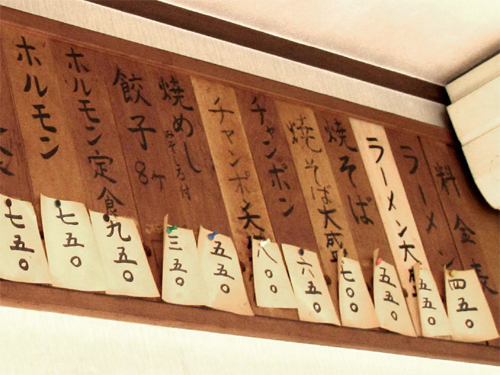 料金表
ラーメン
四五〇
ラーメン大盛
五五〇
焼そば
五五〇
焼そば大盛
七〇〇
チャンポン
六五〇
チャンポン大盛
八〇〇
焼めし
みそしる付
五五〇
餃子8ヶ
三五〇
ホルモン定食
九五〇
ホルモン
七五〇
七五〇